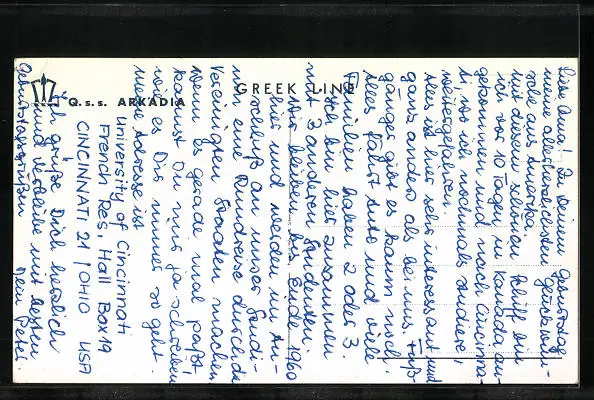 Q.s.s. ARKADIA
GREEK LINE
Liebe Oma! Zu Deinem Geburtstag
meine allerherzlichsten Glückwün-
sche aus Amerika.
Mit diesem schönen Schiff bin
ich vor 10 Tagen in Kanada an-
gekommen und nach Cincinna-
ti, wo ich nochmals studiere,
weitergefahren.
Alles ist hier sehr interessant und
ganz anders als bei uns. Fuß-
gänger gibt es kaum noch.
Alles fährt Auto und viele
Familien haben 2 oder 3.
Ich bin hier zusammen
mit 3 anderen Studenten.
Wir bleiben bis Ende 1960
hier und werden im An-
schluß an unser Studi-
um eine Rundreise durch die
Vereinigten Staaten machen.
Wenn es gerade mal paßt,
kannst Du mir ja schreiben
wie es Dir immer so geht.
Meine Adresse ist
University of Cincinnati
French Res. Hall Box 19
CINCINNATI 21 / OHIO USA
Ich grüße Dich herzlich
und verbleibe mit besten
Geburtstagsgrüßen Dein Peter.